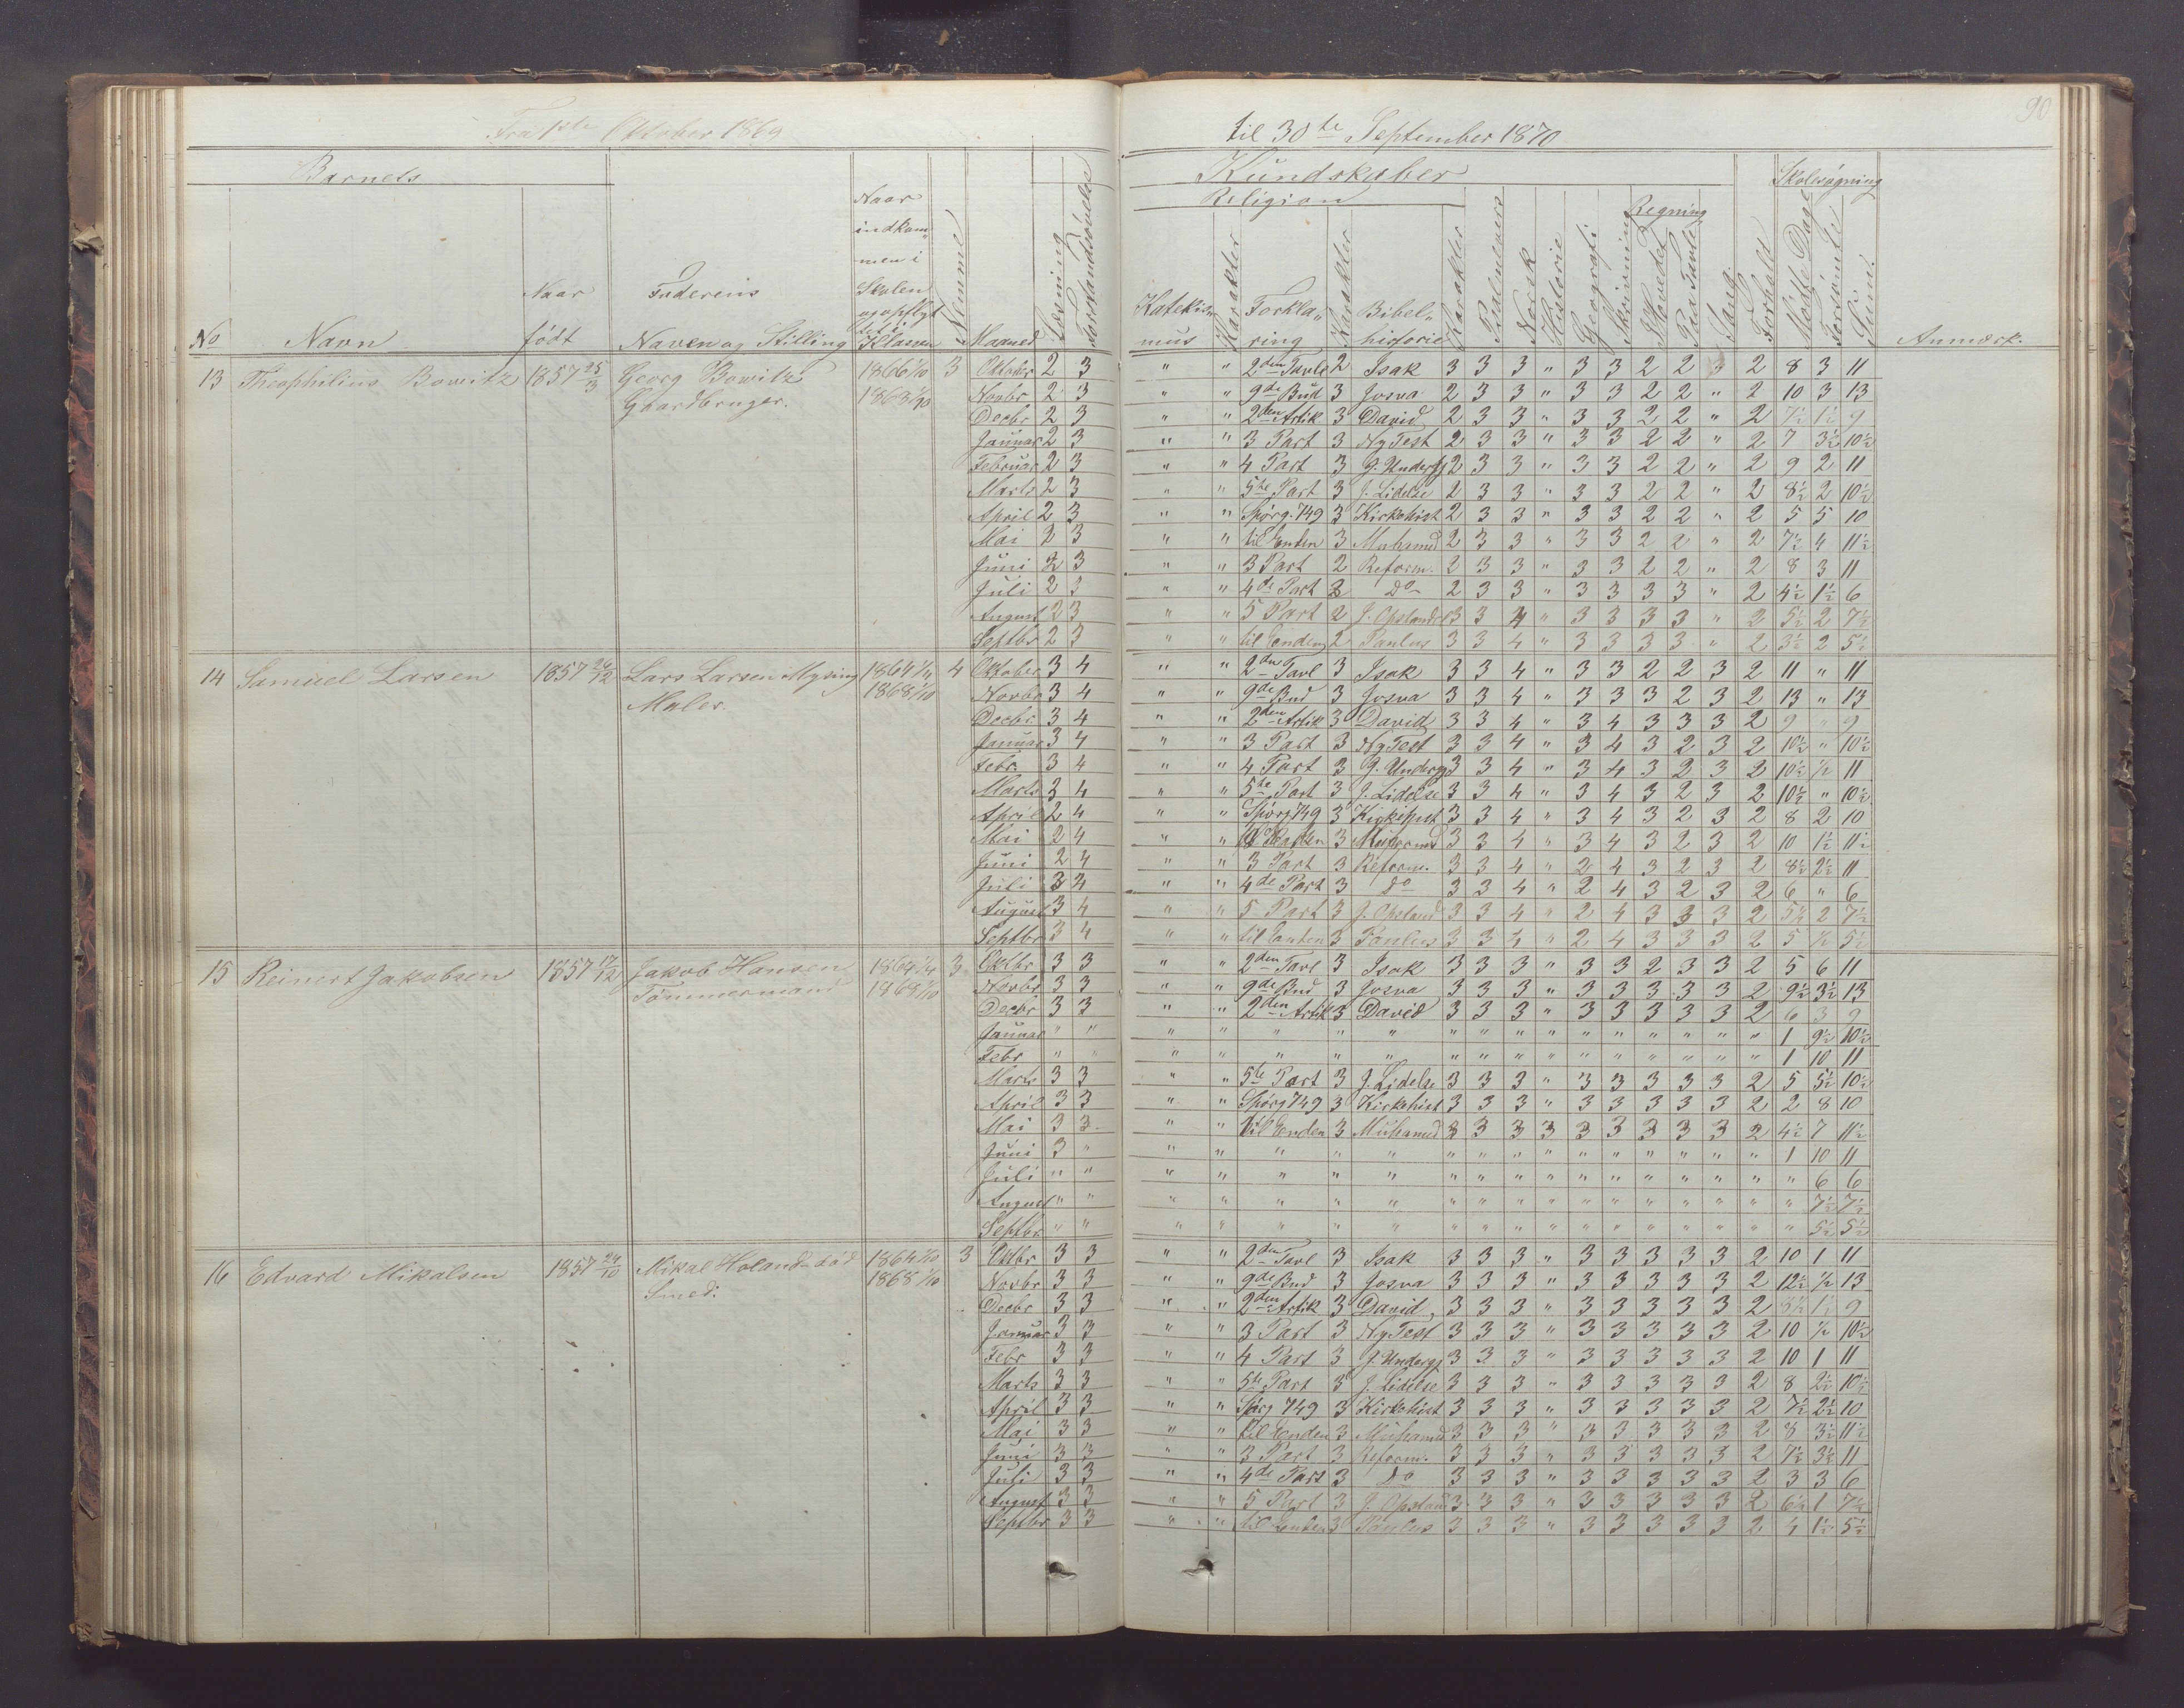 90
Fra 1ste Oktober 1869 til 30te September 1870
Barnets Kundskaber Skolesøgning
Religion Regning
No Navn Naar født Faderens Navn og Stilling Naar indkommen i Skolen og opflyttet i Klassen Nemme Maaned Læsning Forstandsøvelse Katekismus Karakter Forklaring Karakter Bibelhistorie Karakter Psalmevers Norsk Historie Geografi Skrivning I Hovedet Paa Tavle Sang Forhold Mødte Dage Forsømte Sum Anmærk.
13 Theophilius Bowitz 1857 25/3 Georg Bowitz 1866 1/10 3 Oktober 2 3 " " 2den Tavle 2 Isak 3 3 3 " 3 3 2 2 " 2 8 3 11
Gaardbruger. 1868 1/10 Novbr 2 3 " " 9de Bud 3 Josva 2 3 3 " 3 3 2 2 " 2 10 3 13
Decbr 2 3 " " 2den Artik 3 David 2 3 3 " 3 3 2 2 " 2 7½ 1½ 9
Januar 2 3 " " 3 Part 3 Ny Test 2 3 3 " 3 3 2 2 " 2 7 3½ 10½
Februar 2 3 " " 4 Part 3 J. Underg 2 3 3 " 3 3 2 2 " 2 9 2 11
Marts 2 3 " " 5te Part 3 J. Lidelse 2 3 3 " 3 3 2 2 " 2 8½ 2 10½
April 2 3 " " Spørg. 749 3 Kirkehist 2 3 3 " 3 3 2 2 " 2 5 5 10
Mai 2 3 " " til Enden 3 Muhamed 2 3 3 " 3 3 2 2 " 2 7½ 4 11½
Juni 2 3 " " 3 Part 2 Reform. 2 3 3 " 3 3 2 2 " 2 8 3 11
Juli 2 3 " " 4de Part 3 Do 2 3 3 " 3 3 3 3 " 2 4½ 1½ 6
August 2 3 " " 5 Part 2 J. Opstandel 3 3 4 " 3 3 3 3 " 2 5½ 2 7½
Septbr 2 3 " " til Enden 2 Paulus 3 3 4 " 3 3 3 3 " 2 3½ 2 5½
14 Samuel Larsen 1857 24/12 Lars Larsen Mysing 1864 4 Oktober 3 4 " " 2den Tavl 3 Isak 3 3 4 " 3 3 2 2 3 2 11 " 11
Maler. 1868 1/10 Novbr 3 4 " " 9de Bud 3 Josva 3 3 4 " 3 3 3 2 3 2 13 " 13
Decbr 3 4 " " 2den Artik 3 David 3 3 4 " 3 4 3 3 3 2 9 " 9
Januar 3 4 " " 3 Part 3 Ny Test 3 3 4 " 3 4 3 2 3 2 10½ " 10½
Febr. 3 4 " " 4 Part 3 J. Underg 3 3 4 " 3 4 3 2 3 2 10½ ½ 11
Marts 3 4 " " 5te Part 3 J. Lidelse 3 3 4 " 3 4 3 2 3 2 10½ " 10½
April 2 4 " " Spørg 749 3 Kirkehist 3 3 4 " 3 4 3 2 3 2 8 2 10
Mai 2 4 " " 3 3 3 4 " 3 4 3 2 3 2 10 1½ 11½
Juni 2 4 " " 3 Part 3 Reform. 3 3 4 " 2 4 3 2 3 2 8½ 2½ 11
Juli 3 4 " " 4de Part 3 Do 3 3 4 " 2 4 3 2 3 2 6 " 6
August 3 4 " " 5 Part 3 J. Opstand 3 3 4 " 2 4 3 3 3 2 5½ 2 7½
Septbr 3 4 " " til Enden 3 Paulus 3 3 4 " 2 4 3 3 3 2 5 ½ 5½
15 Reinert Jakobsen 1857 17/12 Jakob Hansen 1864 1/4 3 Oktbr 3 3 " " 2den Tavl 3 Isak 3 3 3 " 3 3 2 3 3 2 5 6 11
Tømmermand 1868 1/10 Novbr 3 3 " " 9de Bud 3 Josva 3 3 3 " 3 3 3 3 3 2 9½ 3½ 13
Decbr 3 3 " " 2den Artik 3 David 3 3 3 " 3 3 3 3 3 2 6 3 9
Januar " " " " " " " " " " " " " " " " " " 1 9½ 10½
Febr " " " " " " " " " " " " " " " " " " 1 10 11
Marts 3 3 " " 5te Part 3 J. Lidelse 3 3 3 " 3 3 3 3 3 2 5 5½ 10½
April 3 3 " " Spørg 749 3 Kirkehist 3 3 3 " 3 3 3 3 3 2 2 8 10
Mai 3 3 " " til Enden 3 Muhamed 3 3 3 3 3 3 3 3 3 2 4½ 7 11½
Juni 3 " " " " " " " " " " " " " " " " " 1 10 11
Juli " " " " " " " " " " " " " " " " " " " 6 6
August " " " " " " " " " " " " " " " " " " " 7½ 7½
Septbr " " " " " " " " " " " " " " " " " " " 5½ 5½
16 Edvard Mikalsen 1857 24/10 Mikal Holand død 1864 1/10 3 Oktbr 3 3 " " 2den Tavl 3 Isak 3 3 3 " 3 3 3 3 3 2 10 1 11
Smed. 1868 1/10 Novbr 3 3 " " 9de Bud 3 Josva 3 3 3 " 3 3 3 3 3 2 12½ ½ 13
Decbr 3 3 " " 2den Artik 3 David 3 3 3 " 3 3 3 3 3 2 1½ 9
Januar 3 3 " " 3 Part 3 Ny Test 3 3 3 " 3 3 3 3 3 2 10 ½ 10½
Febr 3 3 " " 4 Part 3 J. Underg 3 3 3 " 3 3 3 3 3 2 10 1 11
Marts 3 3 " " 5te Part 3 J. Lidelse 3 3 3 " 3 3 3 3 3 2 8 2½ 10½
April 3 3 " " Spørg 749 3 Kirkehist 3 3 3 " 3 3 3 3 3 2 7½ 2½ 10
Mai 3 3 " " til Enden 3 Muhamed 3 3 3 " 3 3 3 3 3 2 8 3½ 11½
Juni 3 3 " " 3 Part 3 Reform. 3 3 3 " 3 3 3 3 3 2 7½ 3½ 11
Juli 3 3 " " 4de Part 3 Do 3 3 3 " 3 3 3 3 3 2 3 3 6
August 3 3 " " 5 Part 3 J. Opstan 3 3 3 " 3 3 3 3 3 2 6½ 1 7½
Septbr 3 3 " " til Enden 3 Paulus 3 3 3 " 3 3 3 3 3 2 4 1½ 5½